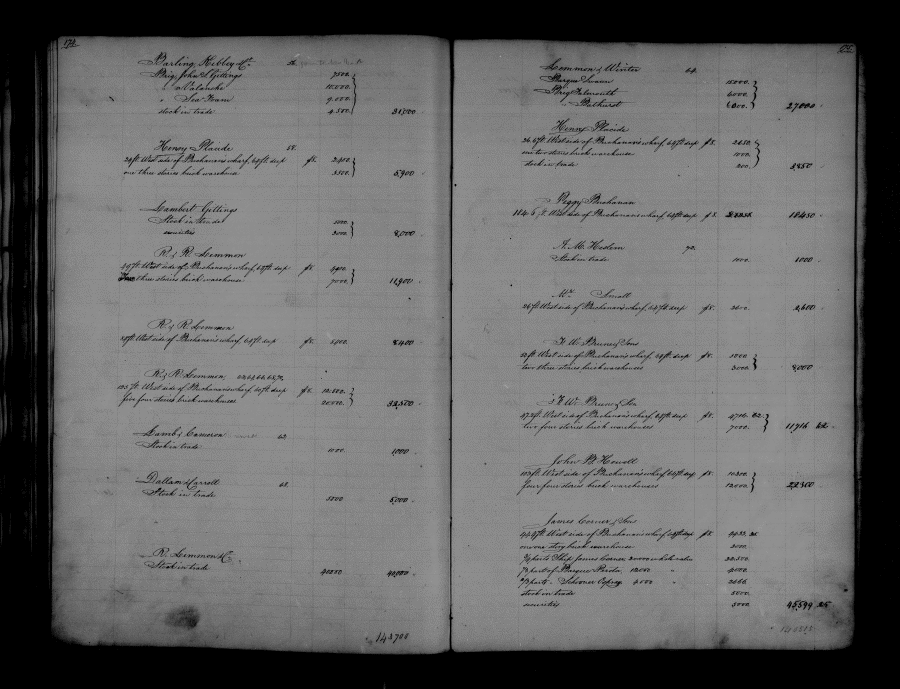 174
Darling, Kibbey & Co 56
Brig John S Gittings 7500.
" Valanche 10.000.
" Sea Foam 9.000.
stock in trade 4.500. 31,000
Henry Placide 58.
24 ft West side of Buchanan's wharf, 60 ft deep f8. 2,400.
one three stories brick warehouse 3500. 5,900
Lambert Gittings
Stock in trade 5000.
securities 3000. 8,000
R. & R. Lemmon
49 ft West side of Buchanan's wharf, 60 ft deep f8. 4900.
Two three stories brick warehouse 7000. 11,900
R & R Lemmon
ft West side of Buchanan's wharf 60 ft deep f8. 8,400
R & R Lemmon,
125 ft West side of Buchanan's wharf, 60 ft deep f8. 12.500.
five four stories brick warehouses 20000. 32,500
Lamb & Cameron 63.
Stock in trade 1000. 1000
Dallam & Carroll 68.
Stock in trade 5000 5,000
R. Lemmon & Co
Stock in trade 40000 40,000
143700
175
Lemmon & Winter 64.
Barque 15000.
Brig Falmouth 6000.
" Bathurst 6000. 27000
Henry Placide
26.6 ft West side of Buchanan's wharf, 60 ft deep f8. 2650.
one two stories brick warehouse 1000.
stock in trade 200. 3850
Peggy Buchanan
184.6 ft West side of Buchanan's wharf, 60 ft deep f8. 18450
A. M. 70.
Stock in trade 1000. 1000
Mr. Small
26 ft West side of Buchanan's wharf, 60 ft deep f8. 2600. 2,600
F. W. Brune & Sons
50 ft West side of Buchanan's wharf, ft deep f8. 5000
two three stories brick warehouses 3000. 8,000
F. W. Brune & Son
47.2 ft West side of Buchanan's wharf 60 ft deep f8. 4716. 62
two four stories brick warehouses 7000. 11716 62
John B. Howell
103 ft West side of Buchanan's wharf 60 ft deep f8. 10300.
four four stories brick warehouses 12000. 22300
James Corner & Sons
ft West side of Buchanan's wharf ft deep f8. 4433. 25
one one story brick warehouse
parts Ship James Corner 30000 whole value 22,500.
part of Barque 12000 " 4000.
2/3 parts - Schooner Osprey 4000 " 2666.
stock in trade 5000.
securities 5000. 45,599 25